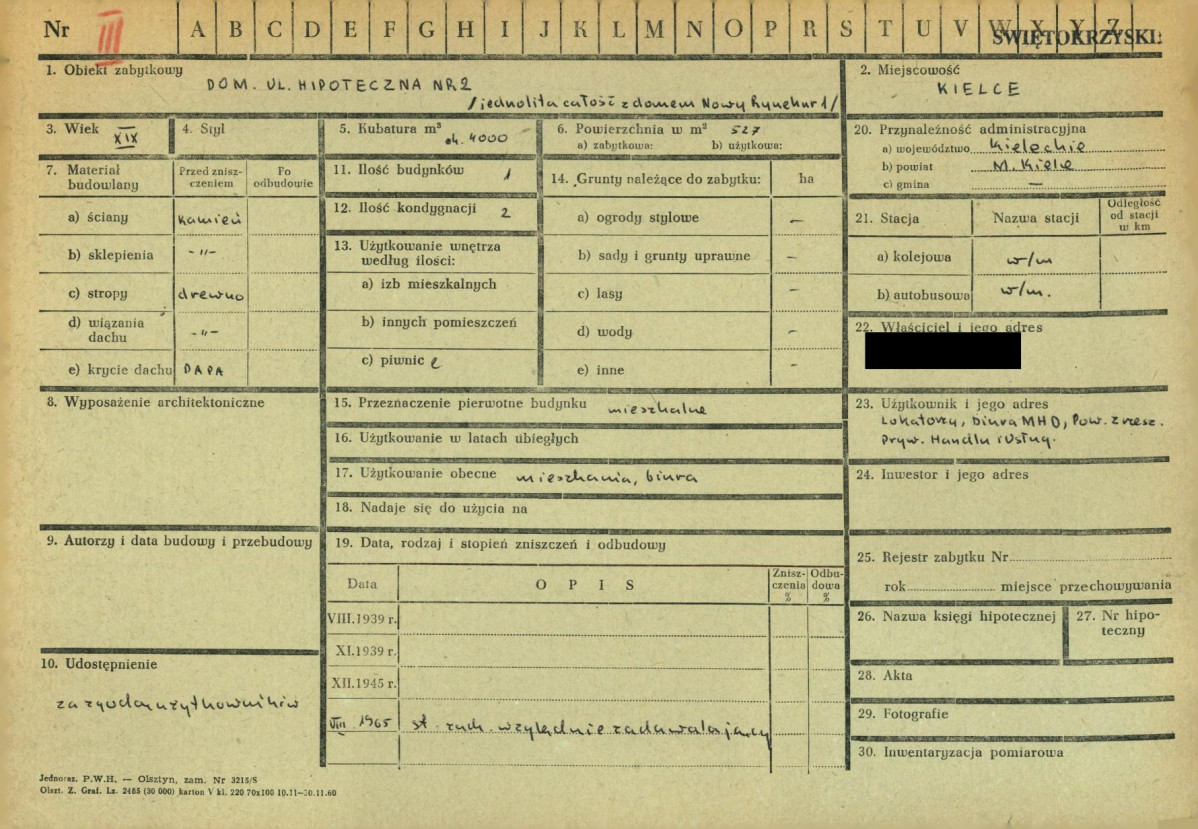 Nr III A B C D E F G H I J K L M N O P R S T U V W X Y Z
ŚWIĘTOKRZYSKI:
1. Obiekt zabytkowy
DOM. UL. HIPOTECZNA NR 2
/jednolita całość z domem Nowy Rynek nr 1/
2. Miejscowość
KIELCE
3. Wiek XIX
4. Styl
5. Kubatura m³ ok. 4000
6. Powierzchnia w m² 527
a) zabytkowa: b) użytkowa:
20. Przynależność administracyjna
a) województwo Kieleckie
b) powiat M. Kielce
c) gmina —
7. Materiał budowlany
Przed znisz-
czeniem
Po
odbudowie
a) ściany kamień
b) sklepienia -"-
c) stropy drewno
d) wiązania
dachu -"-
e) krycie dachu PAPA
11. Ilość budynków 1
12. Ilość kondygnacji 2
13. Użytkowanie wnętrza
według ilości:
a) izb mieszkalnych
b) innych pomieszczeń
c) piwnic 2
14. Grunty należące do zabytku: ha
a) ogrody stylowe —
b) sady i grunty uprawne —
c) lasy —
d) wody —
e) inne —
21. Stacja Nazwa stacji
Odległość
od stacji
w km
a) kolejowa w/m
b) autobusowa w/m.
22. Właściciel i jego adres
8. Wyposażenie architektoniczne
15. Przeznaczenie pierwotne budynku mieszkalne
16. Użytkowanie w latach ubiegłych
17. Użytkowanie obecne mieszkania, biura
18. Nadaje się do użycia na
23. Użytkownik i jego adres
Lokatorzy, biura MHD, Pow. Zrzesz.
Pryw. Handlu i Usług.
24. Inwestor i jego adres
9. Autorzy i data budowy i przebudowy
19. Data, rodzaj i stopień zniszczeń i odbudowy
Data OPIS
Znisz-
czenia
%
Odbu-
dowa
%
VIII.1939 r.
XI.1939 r.
XII.1945 r.
VIII 1965 st. zach. względnie zadawalający
25. Rejestr zabytku Nr
rok miejsce przechowywania
26. Nazwa księgi hipotecznej
27. Nr hipo-
teczny
28. Akta
29. Fotografie
30. Inwentaryzacja pomiarowa
10. Udostępnienie
za zgodą użytkowników
Jednoraz. P.W.H. — Olsztyn, zam. Nr 3215/S
Olszt. Z. Graf. Lz. 2485 (30 000) karton V kl. 220 70x100 10.11—30.11.60